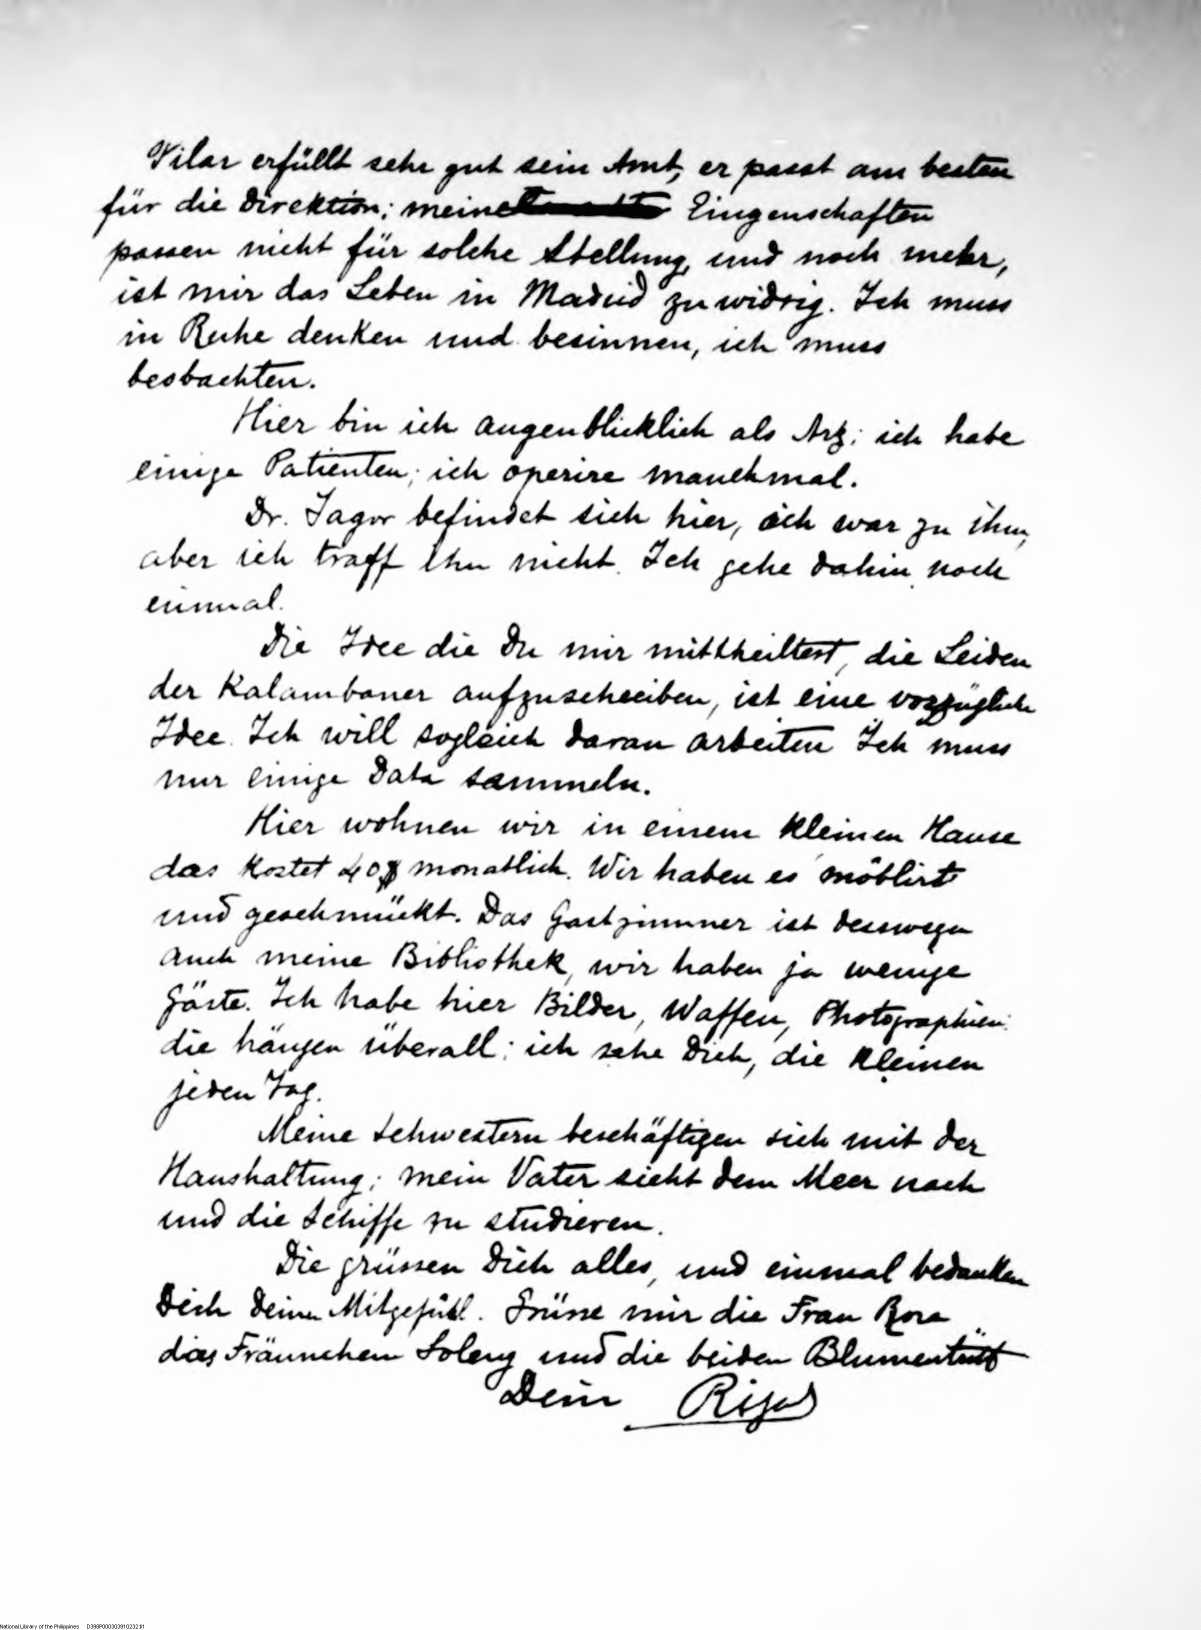 Vilar erfüllt sehr gut sein Amt, er passt am besten
für die Direktion; meine Eingenschaften
passen nicht für solche Stellung, und noch mehr,
ist mir das Leben in Madrid zu widrig. Ich muss
in Ruhe denken und besinnen, ich muss
beobachten.
Hier bin ich augenblicklich als Arz; ich habe
einige Patienten; ich operire manchmal.
Dr. Jagor befindet sich hier, ich war zu ihm,
aber ich traff ihn nicht. Ich gehe dahin noch
einmal.
Die Idee die Du mir mittheiltest, die Leiden
der Kalambaner aufzuschreiben, ist eine vorzügliche
Idee. Ich will sogleich daran arbeiten Ich muss
nur einige Data sammeln.
Hier wohnen wir in einem kleinen Hause
das kostet 40$ monatlich. Wir haben es möblirt
und geschmückt. Das Gastzimmer ist desswegen
auch meine Bibliothek, wir haben ja wenige
Gäste. Ich habe hier Bilder, Waffen, Photographien:
die hängen überall; ich sehe Dich, die kleinen
jeden Tag.
Meine Schwestern beschäftigen sich mit der
Haushaltung; mein Vater sieht dem Meer nach
und die Schiffe zu studieren.
Die grüssen Dich alles, und einmal bedanken
Dich Deinen Mitgefühl. Grüsse mir die Frau Rosa
das Fräunchen Loleng und die beiden Blumentritt
Dein Rizal
National Library of the Philippines